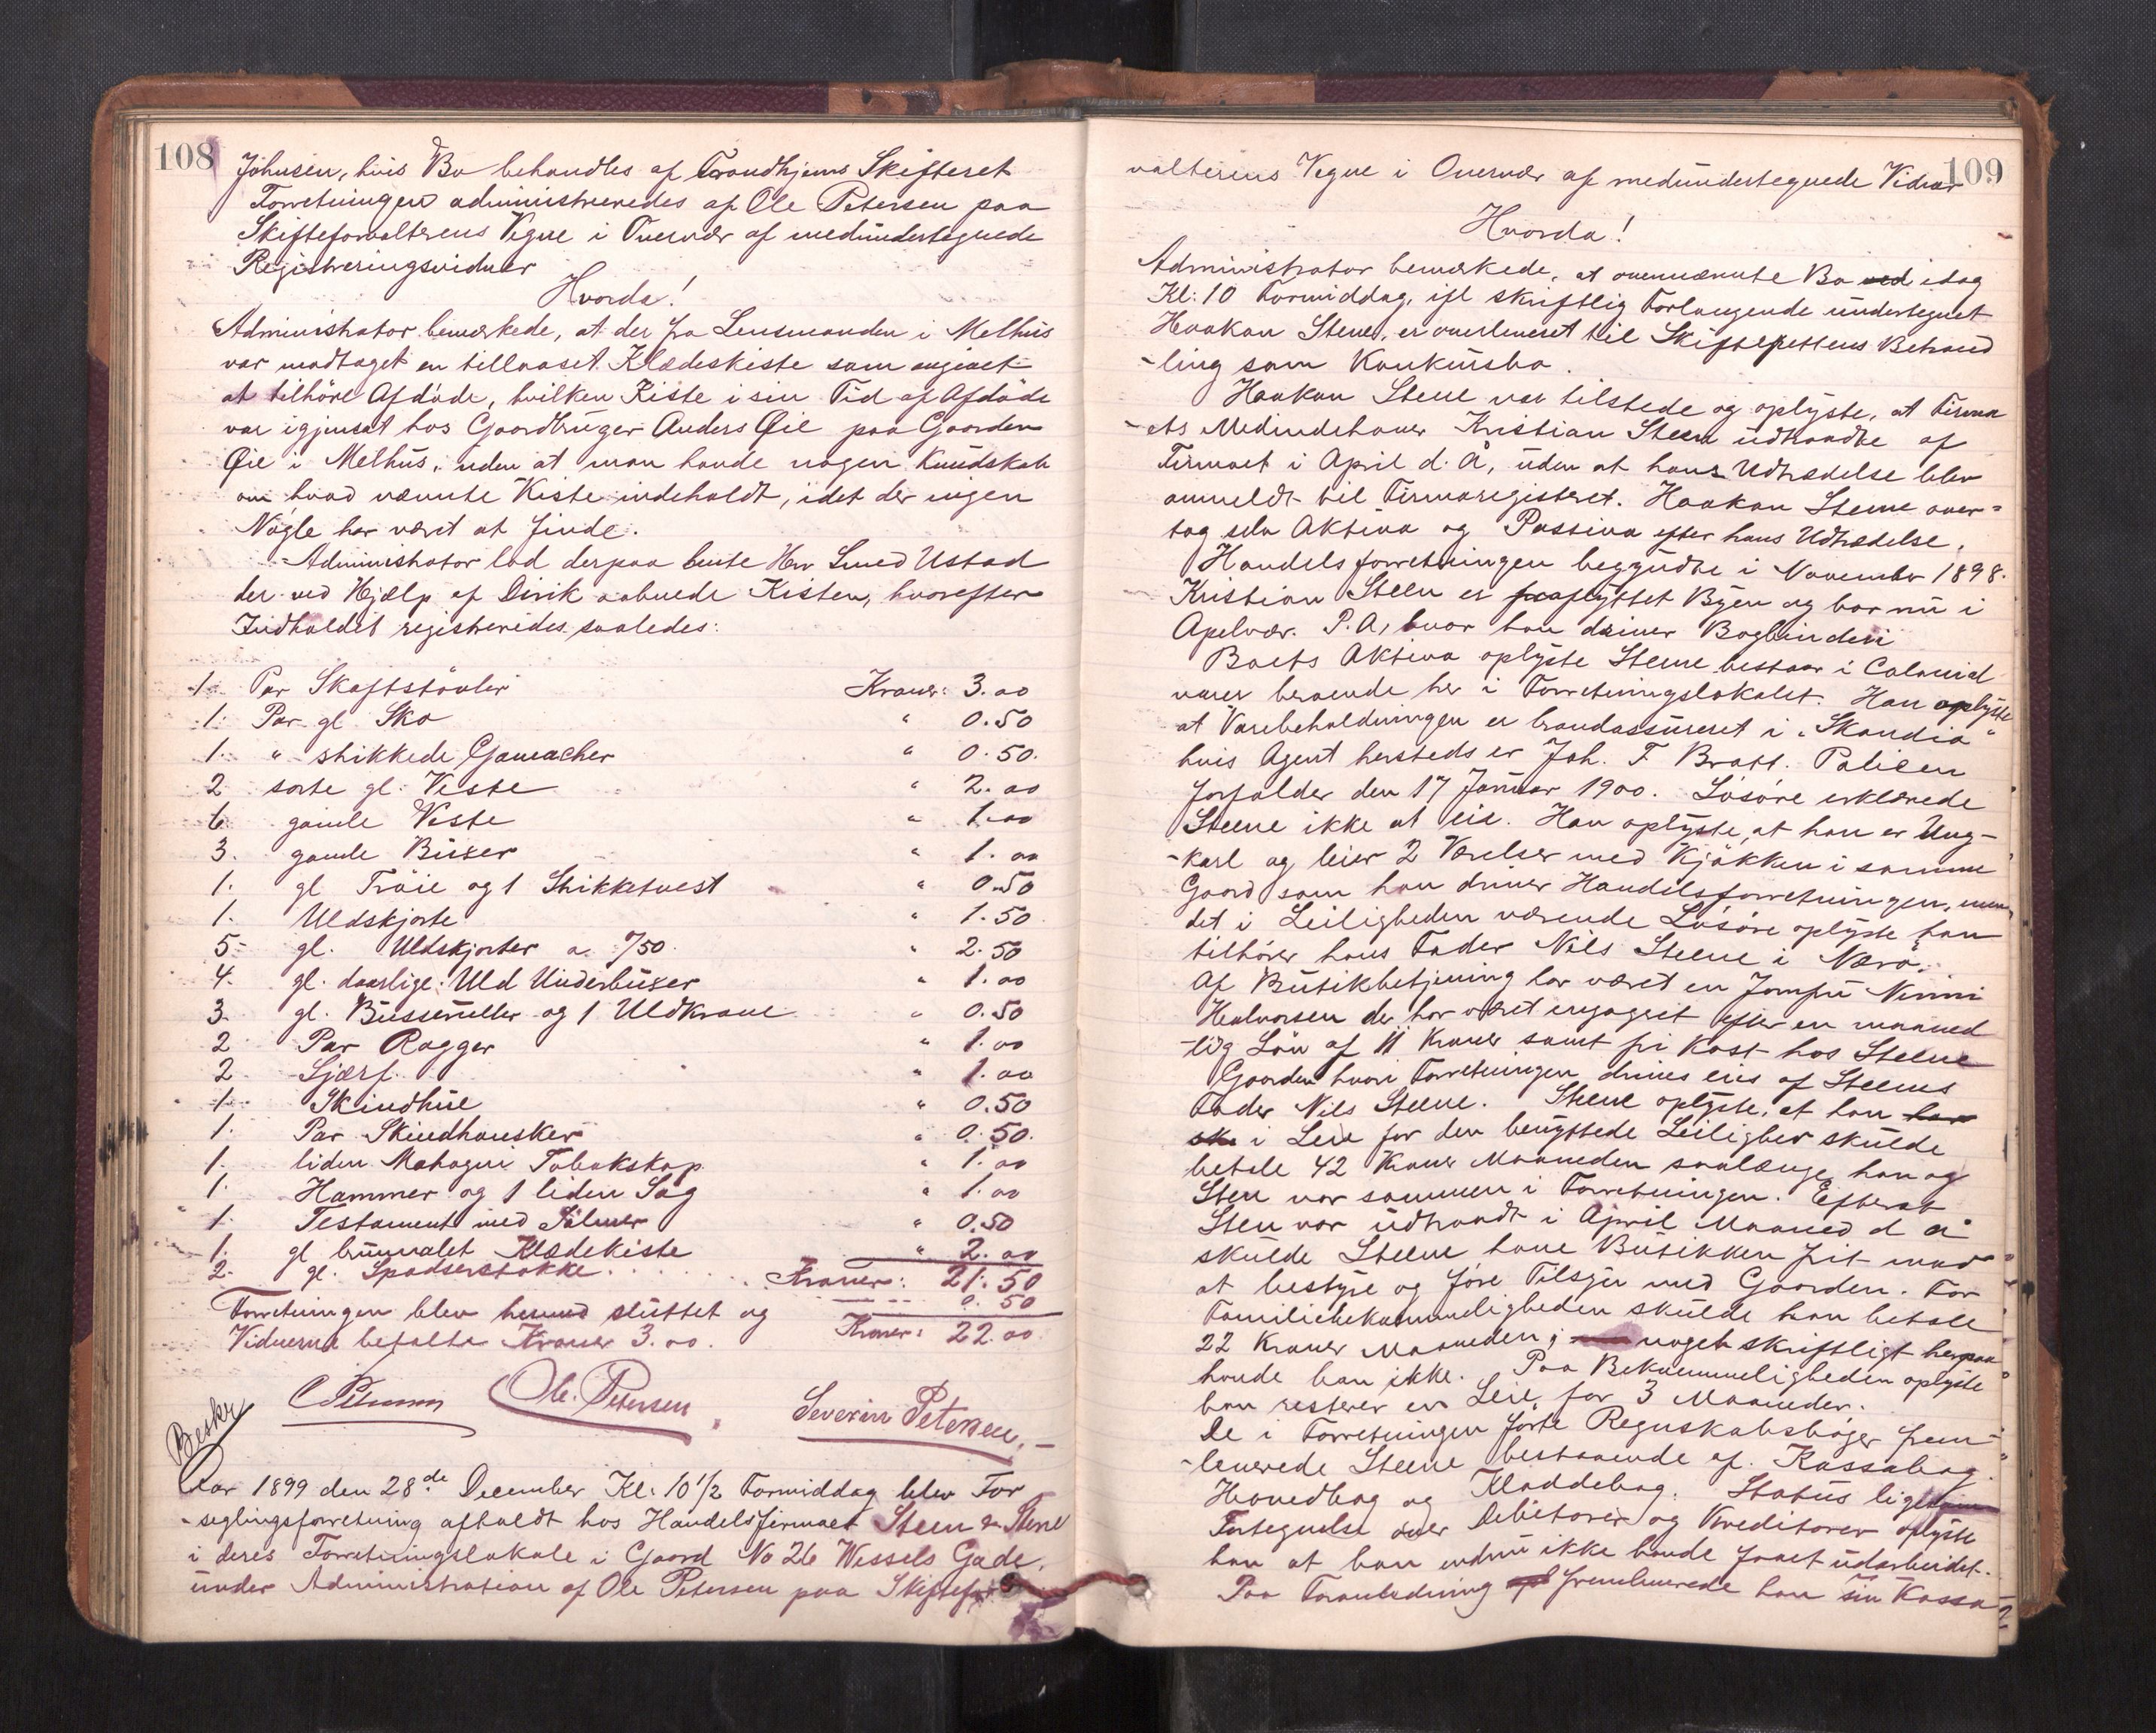 108
Johnsen, hvis Bo behandles af Trondhjems Skifteret
Forretningen administreredes af Ole Petersen paa
Skifteforvalterens Vegne i Overvær af medundertegnede
Registreringsvidner
Hvorda!
Administrator bemærkede, at der fra Lensmanden i Melhus
var modtaget en tillaaset Klædeskiste som angivet
at tilhöre Afdöde, hvilken Kiste i sin Tid af Afdöde
var igjensat hos Gaardbruger Anders Øie paa Gaarden
Øie i Melhus, uden at man havde nogen Kundskab
om hvad nævnte Kiste indeholdt, idet der ingen
Nögle har været at finde.
Administrator lod derpaa hente Herr Smed Ustad
der ved Hjælp af Dirik aabnede Kisten, hvorefter
Indholdet registreredes saaledes:
1 Par Skaftstövler Kroner: 3.00
1. Par gl Sko " 0.50
1. " strikkede Gamacher " 0.50.
2 sorte gl. Veste " 2.00
6 gamle Veste " 1.00
3. gamle Buxer " 1.00
1. gl Tröie og 1 Strikketvest " 0.50
1. Uldskjorte " 1.50
5- gl. Uldskjorter a "/50. " 2.50
4. gl. daarlige Uld Underbuxer " 1.00
3. gl. Busseruller og 1 Uldkrave " 0.50
2 Par Ragger " 1.00
2 Sjærf. " 1.00
1. Skindhue " 0.50
1. Par Skindhansker " 0.50.
1. liden Mahogni Tobakskap " 1.00
1. Hammer og 1 liden Sag " 1.00
1. Testament med Salmer " 0.50
1. gl brunmalet Klædekiste " 2.00
2. gl. Spadserstokke . . . . . . . Kroner: 21.50
0.50
Forretningen blev hermed sluttet og
Vidnerne betalte Kroner 3.00. Kroner: 22.00
C Petersen Ole Petersen. Severin Petersen.-
Beskr
Aar 1899 den 28de December Kl. 10 1/2 Formiddag blev For
-seglingsforretning afholdt hos Handelsfirmaet Steen & Steene
i deres Forretningslokale i Gaard No 26 Wessels Gade.
under Administration af Ole Petersen paa Skiftefor
109
valterens Vegne i Overvær af medundertegnede Vidner
Hvorda!
Administrator bemærkede, at ovennævnte Bo ved idag
Kl: 10 Formiddag, ifl skriftlig Forlangende undertegnet
Haakon Steene, er overleveret til Skifterettens Behand
-ling som Konkursbo.
Haakon Steene var tilstede og oplyste, at Firma
-ets Medindehaver Kristian Steen udtraadte af
Firmaet i April d. A, uden at hans Udtrædelse blev
anmeldt til Firmaregisteret. Haakon Steene over=
tog selv Aktiva og Passiva efter hans Udtrædelse.
Handelsforretningen begyndte i November 1898.
Kristian Steen er fraflyttet Byen og bor nu i
Apelvær. P.A, hvor han driver Bogbinderi
Boets Aktiva oplyste Steene bestaar i Colonial
varer beroende her i Forretningslokalet. Han oplyste
at Varebeholdningen er brandassureret i "Skandia"
hvis Agent hersteds er Joh. F. Bratt. Policen
forfalder den 17 Januar 1900. Lösöre erklærede
Steene ikke at eie. Han oplyste, at han er Ung-
-karl og leier 2 Værelser med Kjökken i samme
Gaard som han driver Handelsforretningen, men
det i Leiligheden værende Lösöre oplyste han
tilhörer hans Fader Nils Steene i Nærö.
Af Butikbetjening har været en Jomfru Ninni
Halvorsen der har været engageret efter en maaned
-lig Lön af 11 Kroner samt fri Kost hos Steene
Gaarden hvori Forretningen drives eies af Steenes
Fader Nils Steene. Steene oplyste, at han har
sku i Leie for den benyttede Leilighed skulde
betale 42 Kroner Maaneden saalænge han og
Steen var sammen i Forretningen. Efterat
Steen var udtraadt i April Maaned d å
skulde Steene have Butikken frit mod
at bestyre og före Tilsyn med Gaarden. For
Familiebekvemmeligheden skulde han betale
22 Kroner Maaneden; noget skriftligt herpaa
havde han ikke. Paa Bekvemmeligheden oplyste
han resterer en Leie for 3 Maaneder.
De i Forretningen förte Regnskabsböger frem-
-leverede Steene bestaaende af. Kassabog.
Hovedbog og Kladdebog. Status ligesom
Fortegnelse over Debitorer og Kreditorer oplyste
han at han endnu ikke havde faaet udarbeidet.
Paa Foranledning fremleverede han sin Kassa